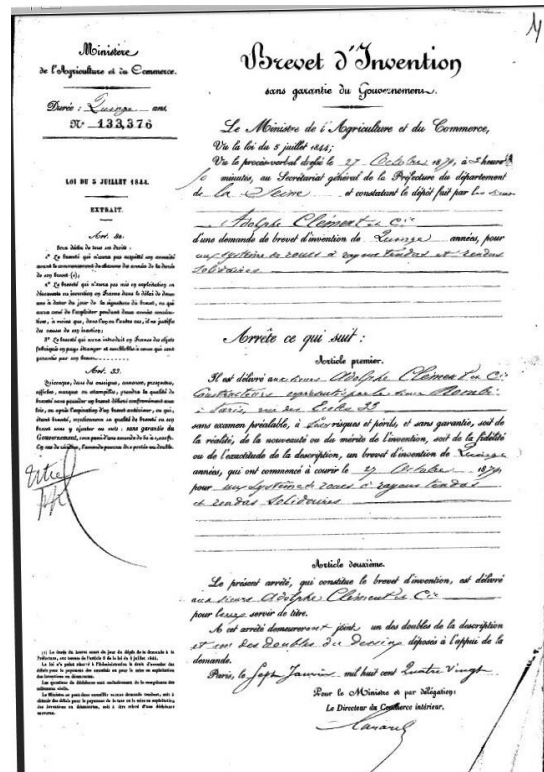 Ministère
de l'Agriculture et du Commerce.
Durée: Quinze ans
N° 133,376
LOI DU 5 JUILLET 1844.
EXTRAIT.
Art. 32.
Sera déchu de tous ses droits:
1° Le breveté qui n'aura pas acquitté son annuité
avant le commencement de chacune des années de la durée
de son brevet (1);
2° Le breveté qui n'aura pas mis en exploitation sa
découverte ou invention en France dans le délai de deux
ans à dater du jour de la signature du brevet, ou qui
aura cessé de l'exploiter pendant deux années consécu-
tives, à moins que, dans l'un ou l'autre cas, il ne justifie
des causes de son inaction;
3° Le breveté qui aura introduit en France des objets
fabriqués en pays étranger et semblables à ceux qui sont
garantis par son brevet.
Art. 33.
Quiconque, dans des enseignes, annonces, prospectus,
affiches, marques ou estampilles, prendra la qualité de
breveté sans posséder un brevet délivré conformément aux
lois, ou après l'expiration d'un brevet antérieur, ou qui,
étant breveté, mentionnera sa qualité de breveté ou son
brevet sans y ajouter ces mots: sans garantie du
Gouvernement, sera puni d'une amende de
En cas de récidive, l'amende pourra être portée au double.
4
Brevet d'Invention
sans garantie du Gouvernement.
Le Ministre de l'Agriculture et du Commerce,
Vu la loi du 5 juillet 1844;
Vu le procès-verbal dressé le 27 Octobre 1879, à 3 heures
minutes, au Secrétariat général de la Préfecture du département
de la Seine et constatant le dépôt fait par les sieurs
Adolphe Clément et Cie
d'une demande de brevet d'invention de Quinze années, pour
un système de roues à rayons tendus et rendus
solidaires
Arrête ce qui suit:
Article premier.
Il est délivré aux sieurs Adolphe Clément et Cie
Constructeurs représentés par le sieur
à Paris, rue des Ecoles 33
sans examen préalable, à leurs risques et périls, et sans garantie, soit de
la réalité, de la nouveauté ou du mérite de l'invention, soit de la fidélité
ou de l'exactitude de la description, un brevet d'invention de Quinze
années, qui ont commencé à courir le 27 Octobre 1879,
pour un système de roues à rayons tendus
et rendus solidaires
Article deuxième.
Le présent arrêté, qui constitue le brevet d'invention, est délivré
aux sieurs Adolphe Clément et Cie
pour leur servir de titre.
A cet arrêté demeureront joints un des doubles de la description
et un des doubles du dessin déposés à l'appui de la
demande.
Paris, le Sept Janvier mil huit cent Quatre vingt
Pour le Ministre et par délégation:
Le Directeur du Commerce intérieur,